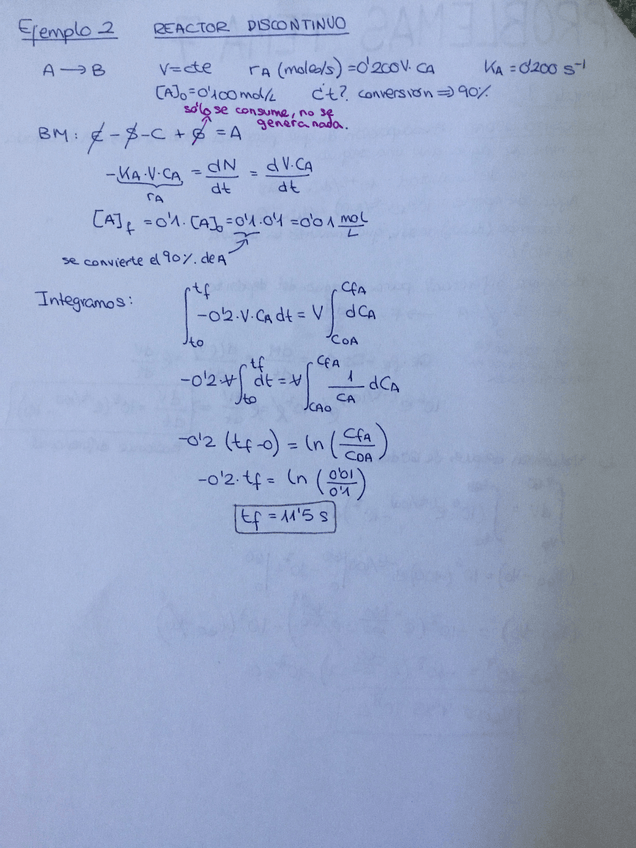 Ejemplo 2 REACTOR DISCONTINUO
A → B V=cte rA (moles/s) = 0'200V·CA KA = 0'200 s⁻¹
[A]₀ = 0'100 mol/L ¿t? conversión ⇒ 90%
sólo se consume, no se
genera nada.
BM: E - S - C + G = A
-KA·V·CA = dN/dt = dV·CA/dt
rA
[A]f = 0'1·[A]₀ = 0'1·0'1 = 0'01 mol/L
se convierte el 90% de A
Integramos: ∫t0^tf -0'2·V·CA dt = V ∫C0A^CfA dCA
-0'2·V ∫t0^tf dt = V ∫CA0^CfA 1/CA dCA
-0'2 (tf-0) = ln (CfA/C0A)
-0'2·tf = ln (0'01/0'1)
tf = 11'5 s